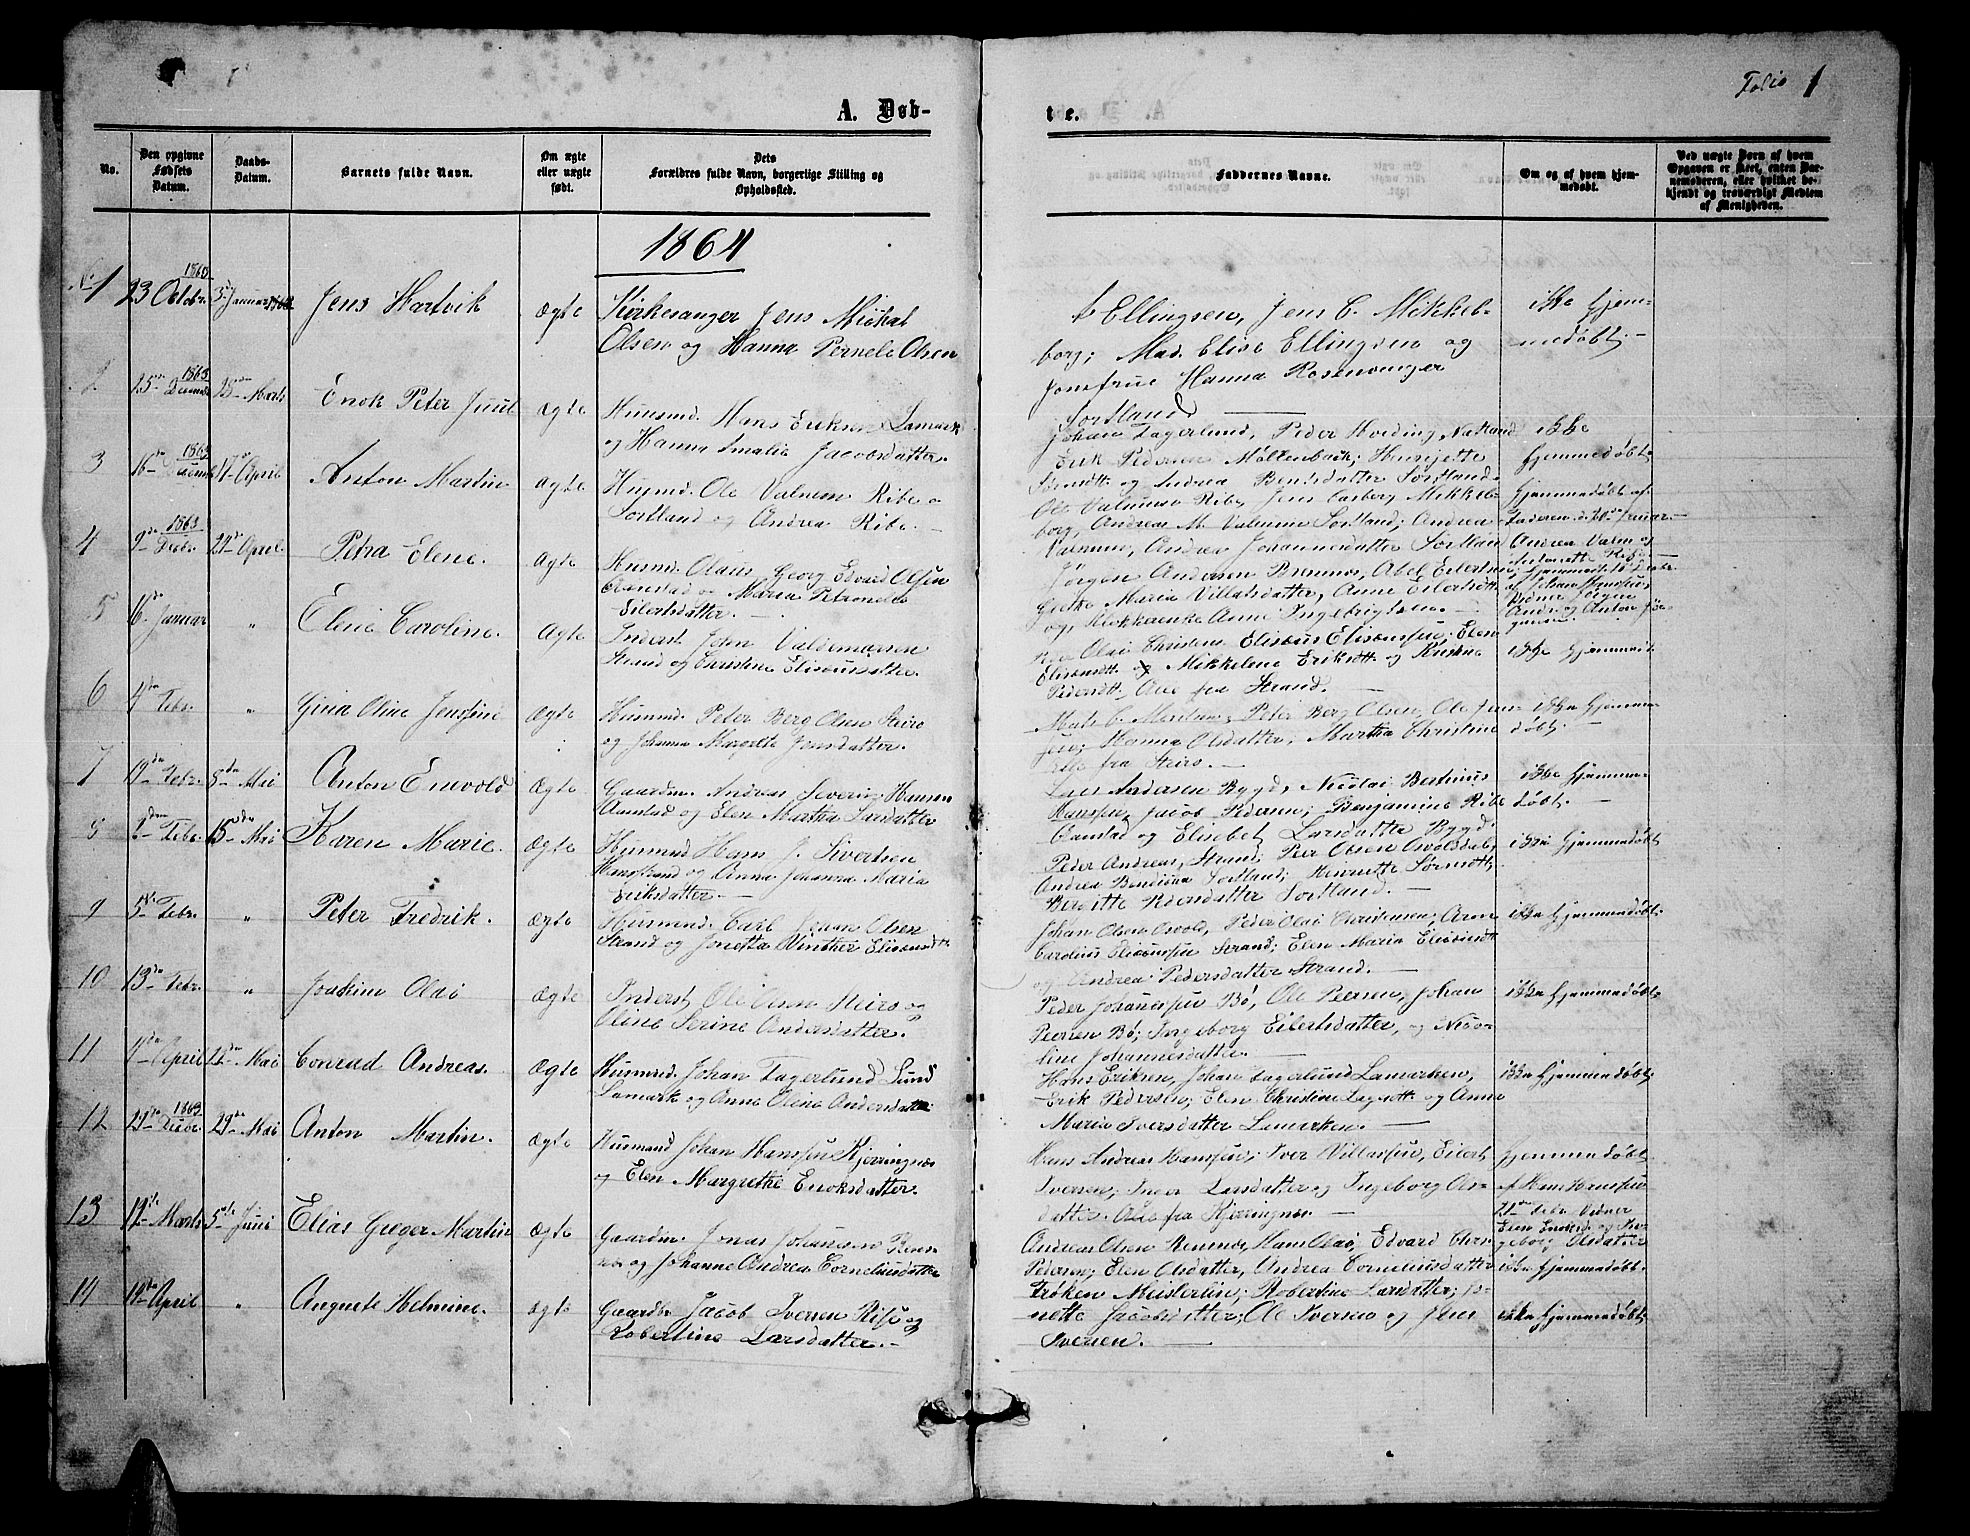 Folio 1
A. Døb-
t e.
No.
Den opgivne Fødsels Datum.
Daabs-Datum.
Barnets fulde Navn.
Om ægte eller uægte født.
Dets Forældres fulde Navn, borgerlige Stilling og Opholdssted.
Faddernes Navne.
Om og af hvem hjemmedøbt.
Ved uægte Børn af hvem Opgaven er skeet, enten Barnemoderen, eller hvilket bekjendt og troværdigt Medlem af Menigheden.
1864
1 23 Octbr. 1863 3 Januar 1864 Jens Hartvik ægte Kirkesanger Jens Mickal
Olsen og Hanna Pernele Olsen
Ellingsen, Jens C. Mikkel-
borg; Mad. Elise Ellingsen og
Jomfrue Hanna Rosenvinger
Sortland
ikke hjem-
medøbt.
2 25de Decemb 1863 28de Marts Enok Peter Juul ægte Huusmd. Hans Eriksen Lamark
og Hanna Amalia Jacobsdatter.
Johan Fagerlund, Peder Hveding,
Erik Pedersen Møllenback; Henrijette
Sørensdtt og Andrea Bentsdatter Sortland
ikke
hjemmedøbt.
3 16de Decemb 1863 17de April Anton Martin ægte Husmd. Ole Valnum Ribe
Sortland og Andrea Ribe.
Ole Valnum Ribe, Jens Carberg Mikkel-
borg, Andreas M. Valnum Sortland; Andrea
Valnum, Andrea Johannesdatter Sortland
hjemmedøbt af
Faderen d. 21de Januar.
Andrea Valnum og
4 9de Decbr. 1863 24de April. Petra Elene. ægte Husmd. Olaus Georg Edvard Olsen
Aanstad og Maria Petronele
Eilertsdatter.
Jørgen Andersen Bremnes, Abel Eilertsen
Maria Villatsdatter, Anne Eilertsdtt
og, Anne Ingebrigtsen.
5 6te Januar " Elene Caroline. ægte Inderst John Valdemarsen
Strand og Christine Elisæusdatter.
Olai Christens Elisæus Elisæussen, Elen
Elisæusdtt. og Mikkeline Eriksdtt. og Kristine
Pedersdtt. Alle fra Strand.
ikke hjemmedøbt
6 4de Febr. " Gina Olina Jensine ægte Husmd. Peter Berg Olsen Steiro
og Johanna Margrete Jensdatter.
Mats C. Peter Berg Olsen, Ole Jen-
sen; Hanna Olsdatter; Martha Christine
Alle fra Steiro.
ikke hjemme-
døbt.
7 19de Febr. 5de Mai Anton Enevold ægte Gaardm. Andreas Severin Hansen
Aanstad og Elen Martha Larsdatter
Lars Andersen Bygd; Nicolai Bertinus
Hanssen Jacob Pedersen; Benjamine Ribe
Aanstad og Elisebet Larsdatter Bygd.
ikke hjemme-
døbt.
8 Febr. 15de Mai Karen Marie. ægte Husmd Hans J. Sivertsen
og Anna Johanna Maria
Eriksdatter.
Peder Andreas, Strand; Peer Olsen Osvoldsdal,
Andrea Bendiksa Sortland; Henrette Sørensdtt;
Bergitte Pedersdatter Sortland.
ikke hjemmedøbt
9 5te Febr. " Peter Fredrik. ægte Husmnd. Carl Johan Olsen
Strand og Jonetta Vinther Elisæusdtt.
Johan Olsen Osvold, Peder Olai Christensen, Arne
Carolius Elisæussen Strand; Elen Maria Elisæusdtt.
og Andrea Pedersdatter Strand.
ikke hjemmedøbt.
10 13de Febr. " Joakim Olai ægte Inderst Ole Steiro og
Oline Serine Andersdatter.
Peder Johanessen Bø, Ole Peersen, Johan
Peersen Bø; Ingeborg Eilertsdatter, og Nico-
line Johannesdatter.
ikke hjemmedøbt.
11 4de April 12te Mai Conrad Andreas. ægte Husmnd. Johan Fagerlund Sund
Lamark og Anne Oline Andersdatter
Hans Eriksen, Johan Fagerlund Lamarken,
Erik Pedersen; Elen Christine og Anna
Maria Iversdatter Lamarken.
ikke hjemmedøbt.
12 29de Decbr. 1863 29de Mai Anton Martin. ægte Husmand Johan Hanssen Kjerringnes
og Elen Margrethe Enoksdatter.
Hans Andreas Hanssen; Iver Villassen, Eilert
Iversen; Inger Larsdatter og Ingeborg Ols-
datter. Alle fra Kjerringnes.
hjemmedøbt
af Hans Hanssen
21de Febr. Vidner
Elen Enoksd. og In-
geborg Olsdatter
13 19de Marts 5te Juni Elias Gieger Martin ægte Gaardm. Jonas Johansen Rens-
nes og Johanne Andrea Corneliusdatter
Andreas Olsen Rensnes, Hans Olai, Edvard Chri-
Pedersen; Elen Olsdatter, Andrea Corneliusdatter
ikke hjemmedøbt.
14 19de April " Augusta Helmine. ægte Gaardbr. Jacob Iversen Risø og
Robertine Larsdatter.
Frøken Meisterlin; Robertine Larsdatter; Jo-
nette Jacobsdatter; Ole Iversen og Jens
Iversen.
ikke hjemmedøbt.